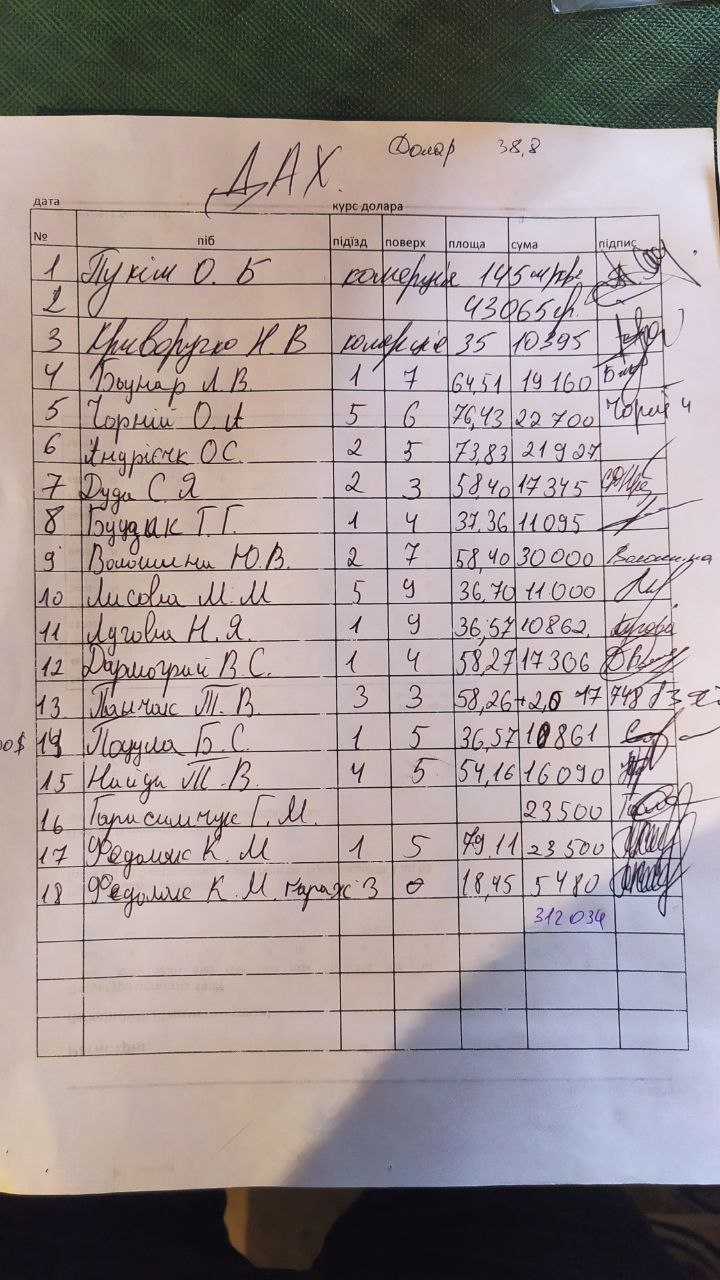 Долар 38,8
ДАХ.
дата курс долара
№ піб підїзд поверх площа сума підпис
1 Пукім О. Б комерція 145 м/кв
2 43065 гр.
3 Криворучко Н В комерція 35 10395
4 Боднар Л. В. 1 7 64,51 19160
5 Чорній О. А 5 6 76,43 22700 Чорній
6 Андрієчк О С. 2 5 73,83 21927
7 Дуда С. Я 2 3 58,40 17345
8 Буддак Г. Г. 1 4 37,36 11095
9 Волошина Ю. В. 2 7 58,40 30000 Волошина
10 Лисовка М. М 5 9 36,70 11000
11 Лугова Н. Я. 1 9 36,57 10862 Лугова
12 Дармограй В. С. 1 4 58,27 17306
13 Панчак Т. В. 3 3 58,26+2,0 17 748
14 Поцула Б. С. 1 5 36,57 10861
15 Найда Т. В. 4 5 54,16 16090
16 Гарисимчук Г. М. 23500
17 Федоляк К. М 1 5 79.11 23500
18 Федоляк К. М. гараж 3 0 18,45 5480
312 034